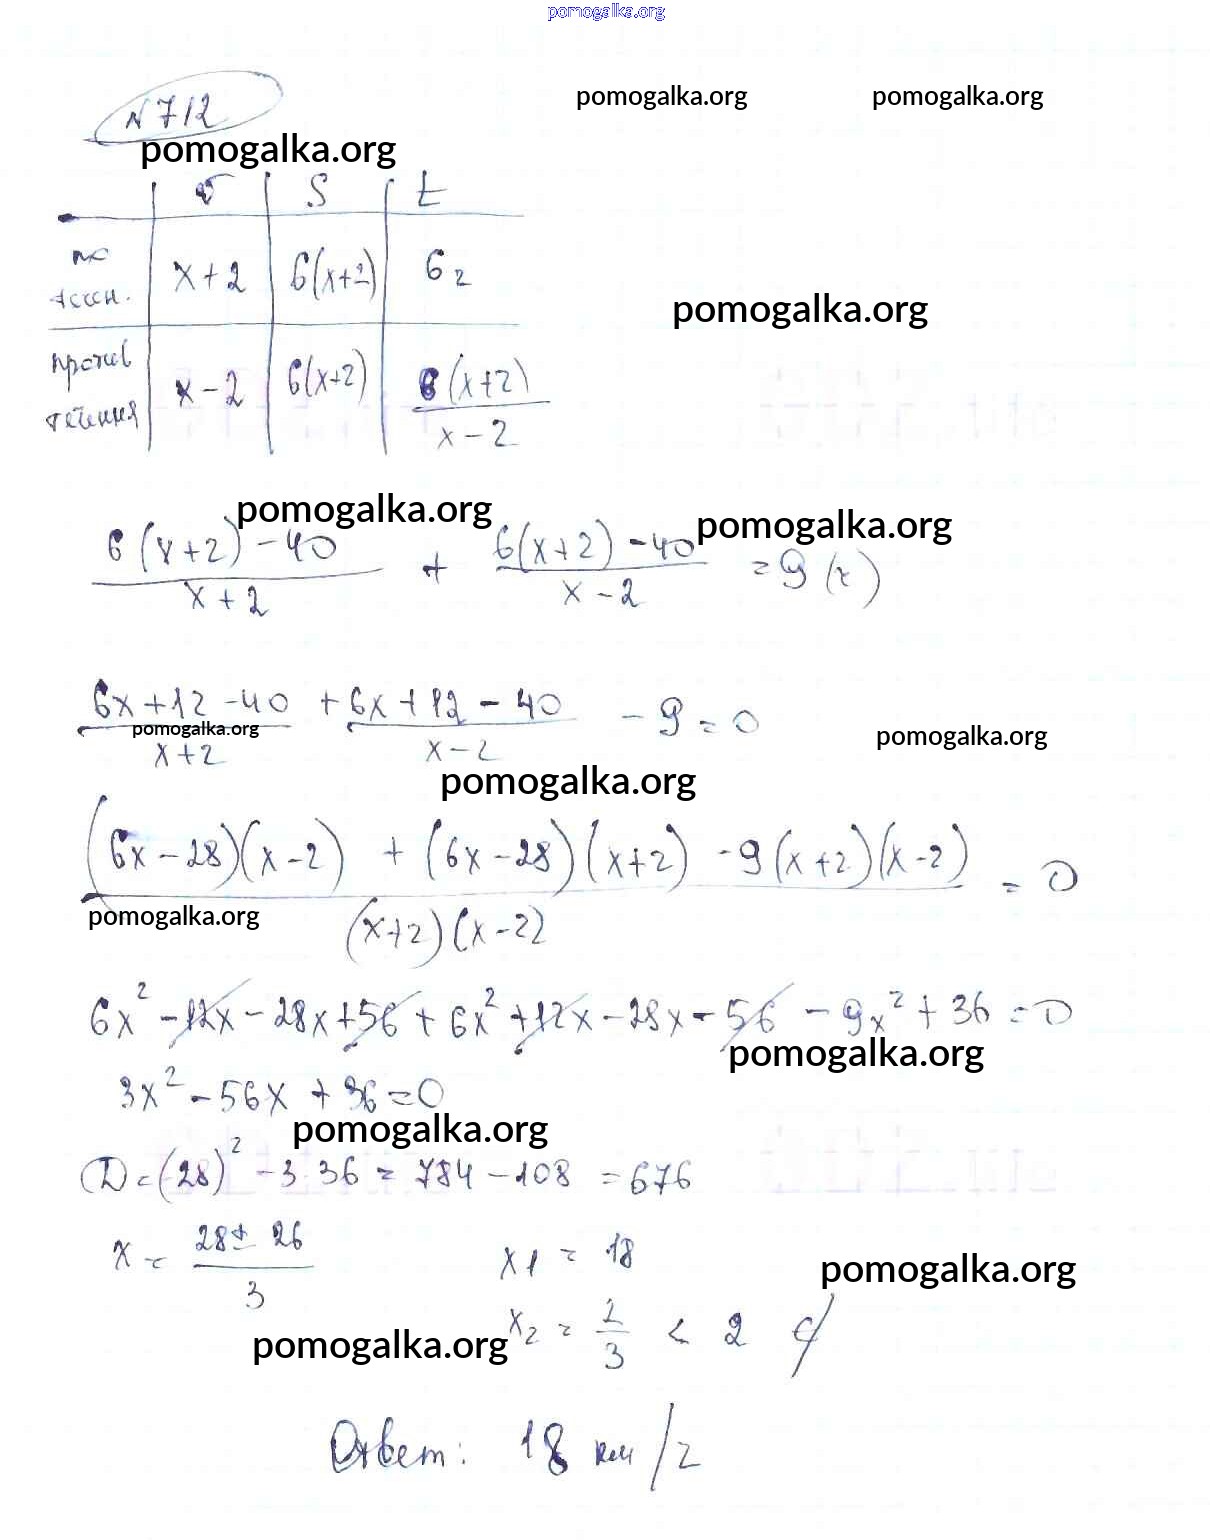 pomogalka.org
N 712
pomogalka.org pomogalka.org
pomogalka.org
v S t
по x+2 6(x+2) 6 ч
течен.
pomogalka.org
против x-2 6(x+2) 6(x+2)/(x-2)
течения
pomogalka.org pomogalka.org
(6(x+2)-40)/(x+2) + (6(x+2)-40)/(x-2) = 9 (ч)
(6x+12-40)/(x+2) + (6x+12-40)/(x-2) - 9 = 0
pomogalka.org pomogalka.org
pomogalka.org
((6x-28)(x-2) + (6x-28)(x+2) - 9(x+2)(x-2))/((x+2)(x-2)) = 0
pomogalka.org
6x² - 12x - 28x + 56 + 6x² + 12x - 28x - 56 - 9x² + 36 = 0
pomogalka.org
3x² - 56x + 36 = 0
pomogalka.org
D = (28)² - 3·36 = 784 - 108 = 676
x = (28 ± 26)/3 x1 = 18
pomogalka.org
x2 = 2/3 < 2
pomogalka.org
Ответ: 18 км/ч